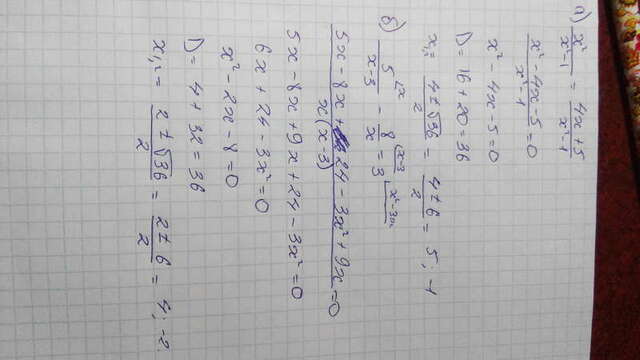 а) x²/(x²-1) = (4x+5)/(x²-1)
(x²-4x-5)/(x²-1) = 0
x²-4x-5=0
D = 16+20=36
x₁,₂ = (4±√36)/2 = (4±6)/2 = 5; -1
б) 5/(x-3) - 8/x = 3
(5x-8x+24-3x²+9x)/(x(x-3)) = 0
5x-8x+9x+24-3x²=0
6x+24-3x²=0
x²-2x-8=0
D = 4+32=36
x₁,₂ = (2±√36)/2 = (2±6)/2 = 4; -2.